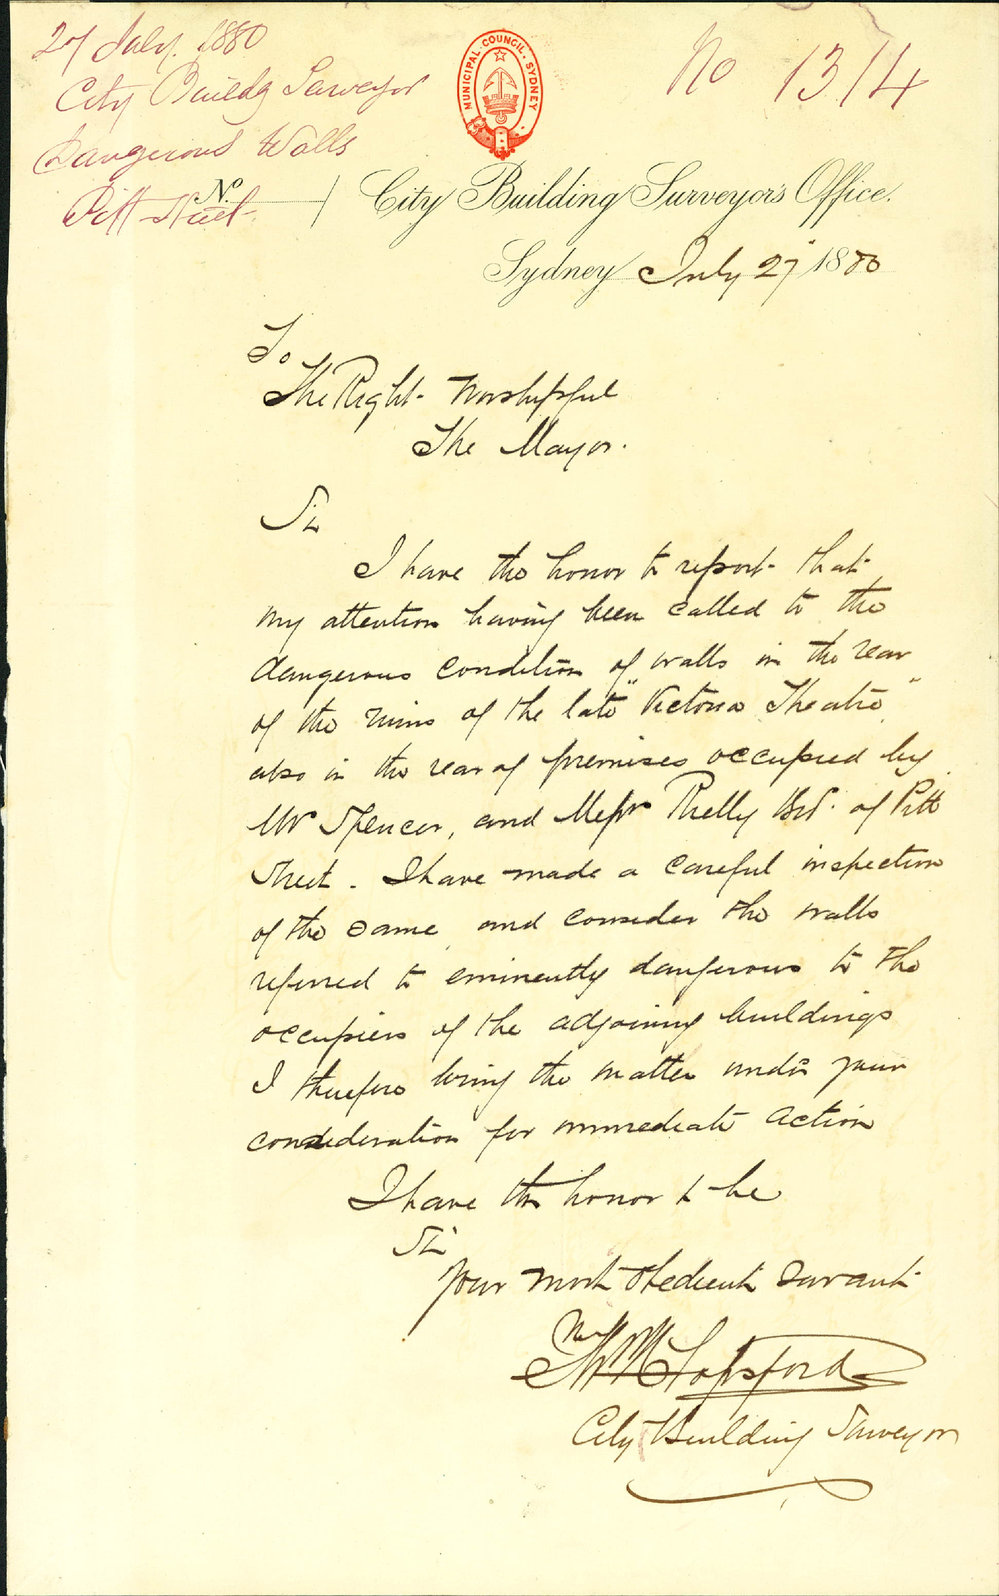 27 July. 1880
City Buildg Surveyor
Dangerous Walls
Pitt Street.
No 1314
MUNICIPAL COUNCIL. SYDNEY
No.
City Building Surveyor's Office.
Sydney July 27 1880
To
The Right Worshipful
The Mayor.
Sir
I have the honor to report that
my attention having been called to the
dangerous condition of walls in the rear
of the ruins of the late "Victoria Theatre"
also in the rear of premises occupied by
Mr Spencer, and Messrs Reilly Bros. of Pitt
Street. I have made a careful inspection
of the same and consider the walls
referred to eminently dangerous to the
occupiers of the adjoining buildings
I therefore bring the matter under your
consideration for immediate action
I have the honor to be
Sir
Your most obedient servant
City Building Surveyor